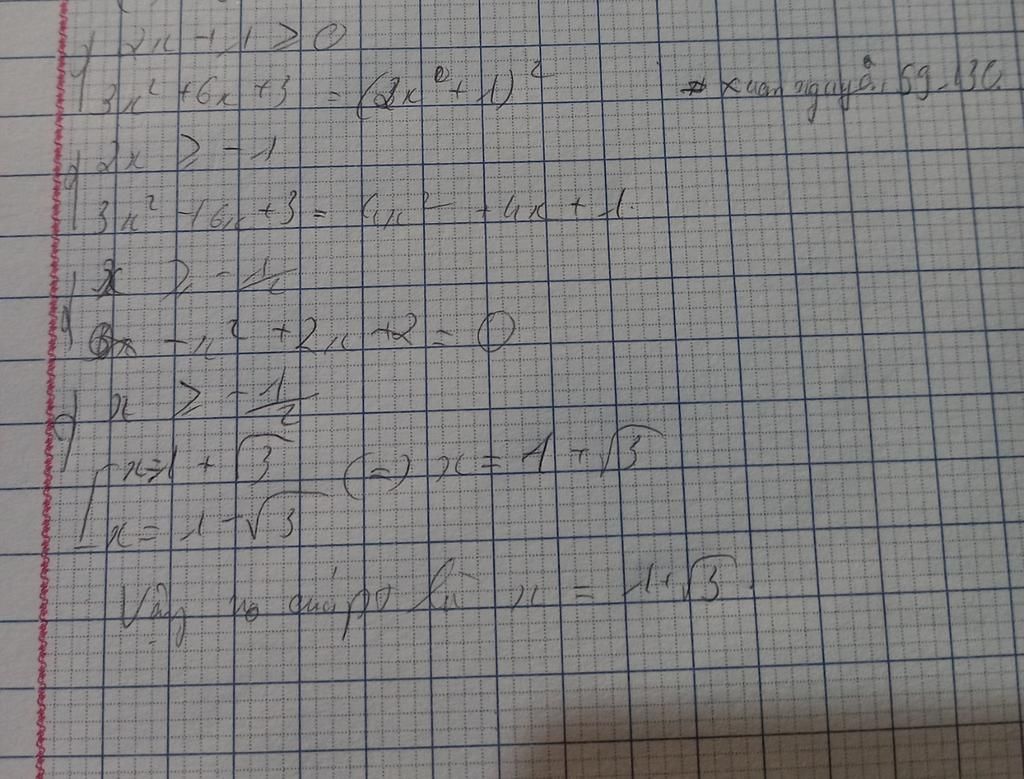 2x + 1 ≥ 0
3x² + 6x + 3 = (2x + 1)²
2x ≥ -1
3x² + 6x + 3 = 4x² + 4x + 1
x ≥ -1/2
-x² + 2x + 2 = 0
x ≥ -1/2
x = 1 + √3 (=) x = 1 + √3
x = 1 - √3
Vậy no của pt là x = 1 + √3